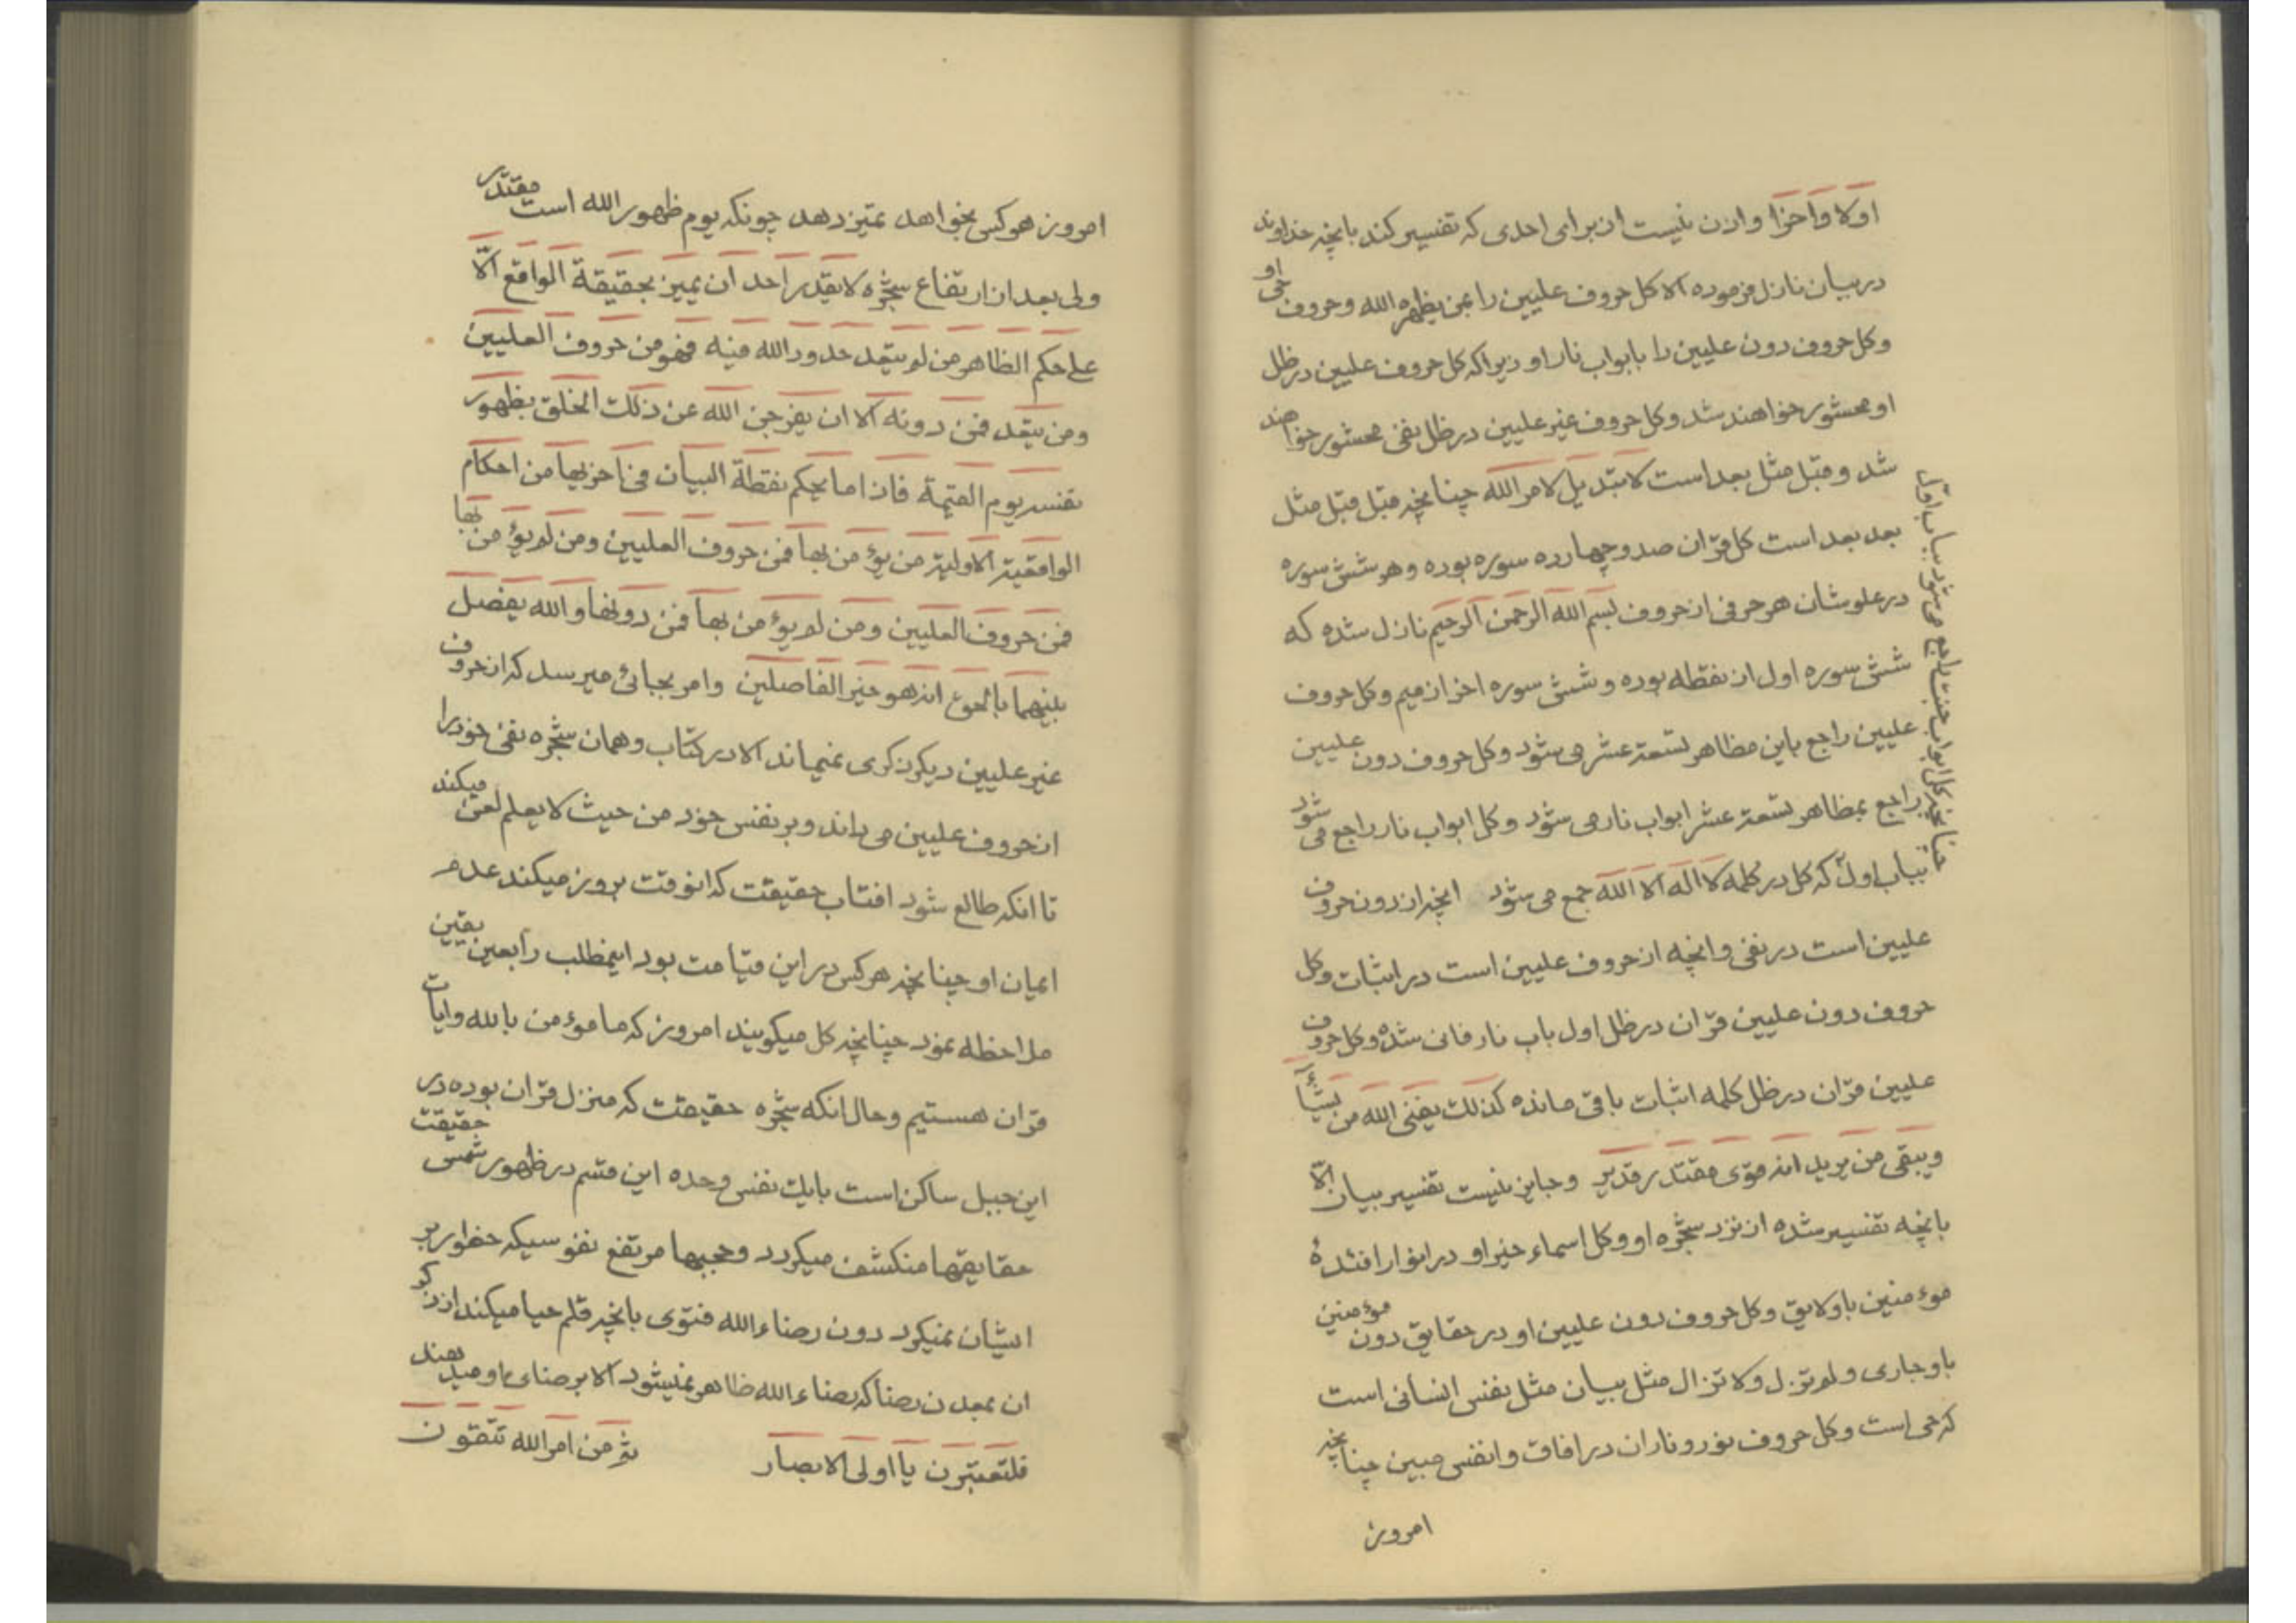 اولا واخرا واذن نیست از برای احدی که تفسیر کند بانچه خداوند
در بیان نازل فرموده الا کل حروف علیین را بمن یظهره الله وحروف حی او
وکل حروف دون علیین را بابواب نار او زیرا که کل حروف علیین در ظل
او محشور خواهند شد وکل حروف غیر علیین در ظل نفی محشور خواهند
شد وقبل مثل بعد است لا تبدیل لامر الله چنانچه قبل قبل مثل
بعد بعد است کل قرآن صد وچهارده سوره بوده وهر شش سوره
در علو شان هر حرفی از حروف بسم الله الرحمن الرحیم نازل شده که
شش سوره اول از نقطه بوده وشش سوره اخر از میم وکل حروف
علیین راجع باین مظاهر تسعة عشر می شود وکل حروف دون علیین
راجع بمظاهر تسعة عشر ابواب نار می شود وکل ابواب نار راجع می شود
بباب اول که کل در کلمه لا اله الا الله جمع می شود انچه از دون حروف
علیین است در نفی وانچه از حروف علیین است در اثبات وکل
حروف دون علیین قرآن در ظل اول باب نار فانی شده وکل حروف
علیین قرآن در ظل کلمه اثبات باقی مانده کذلک یفنی الله من یشآء
ویبقی من یرید انه قوی مقتدر قدیر وجایز نیست تفسیر بیان الّا
بانچه تفسیر شده از نزد شجره او وکل اسماء خیر او در انوار افئدهٔ
موءمنین باو لایق وکل حروف دون علیین او در حقایق دون موءمنین
باو جاری ولم تزل ولا تزال مثل بیان مثل نفس انسانی است
که حی است وکل حروف نور ونار ان در افاق وانفس مبین چنانچه
امروز
چنانچه کل ابواب جنت راجع می شود بباب اوّل
امروز هر کس بخواهد تمیز دهد چونکه یوم ظهور الله است مقتدر
ولی بعد از ارتفاع شجره لا یقدر احد ان یمیز بحقیقة الواقع الّا
علی حکم الظاهر من لم یتعد حدود الله فیه فهو من حروف العلیین
ومن یتعد فمن دونه الا ان یفرجن الله عن ذلک الخلق بظهور
نفسه یوم القیمة فاذا ما یحکم نقطة البیان فی اخریها من احکام
الواقعیة الاولیة من یؤمن بها فمن حروف العلیین ومن لم یؤمن بها
فمن حروف العلیین ومن لم یؤمن بها فمن دونها والله یفصل
بینهما بالحق انه هو خیر الفاصلین وامر بجائی میرسد که از حروف
غیر علیین دیگر ذکری نمیماند الا در کتاب وهمان شجره نفی خود را
از حروف علیین می داند وبر نفس خود من حیث لا یعلم لعن میکند
تا انکه طالع شود افتاب حقیقت که انوقت بروز میکند عدم
ایمان او چنانچه هر کس در این قیامت بود اینمطلب را بعین یقین
ملاحظه نمود چنانچه کل میگویند امروز که ما موءمن بالله وایات
قرآن هستیم وحال انکه شجره حقیقت که منزل قرآن بوده در
این جبل ساکن است بایک نفس وحده این قسم در ظهور شمس حقیقت
حقایقها منکشف میگردد وحجبها مرتفع نفوسیکه خطور بر
ایشان نمیکرد دون رضاء الله فتوی بانچه قلم حیا میکند از ذکر
ان بمعدن رضا که رضاء الله ظاهر نمیشود الا برضای او میدهند
فلتعتبرن یا اولی الابصار ثم من امر الله تتقون